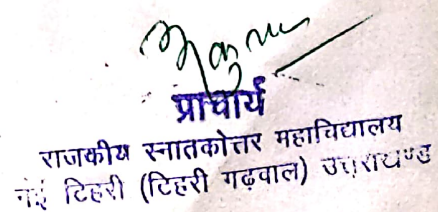 प्राचार्य
राजकीय स्नातकोत्तर महाविद्यालय
नई टिहरी (टिहरी गढ़वाल) उत्तराखण्ड